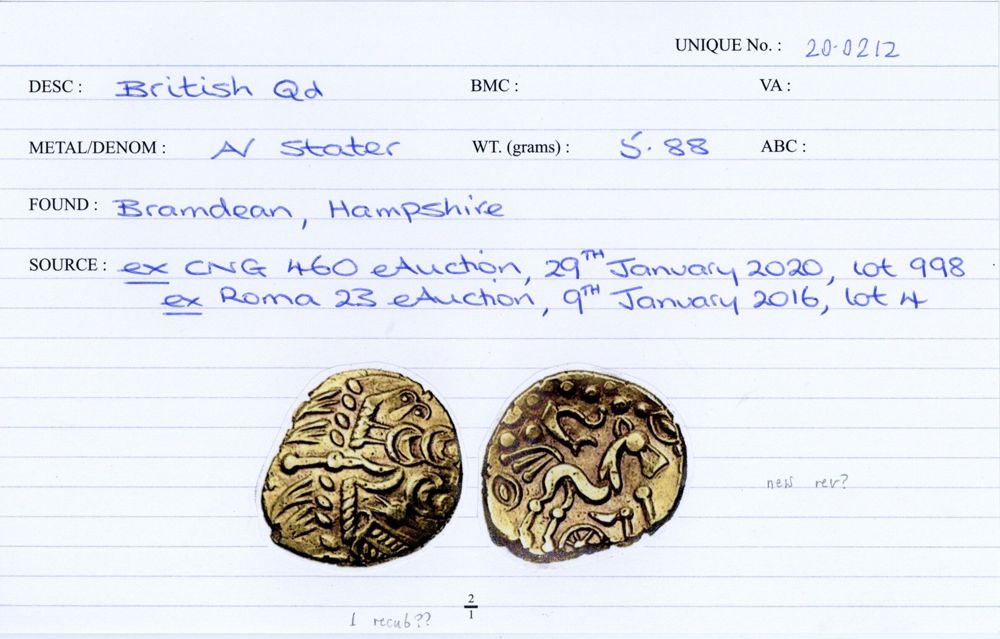 UNIQUE No. : 20-0212
DESC : British Qd BMC : VA :
METAL/DENOM : AV Stater WT. (grams) : 5.88 ABC :
FOUND : Bramdean, Hampshire
SOURCE : ex CNG 460 eAuction, 29TH January 2020, lot 998
ex Roma 23 eAuction, 9TH January 2016, lot 4
new rev?
2
1
1 recub??